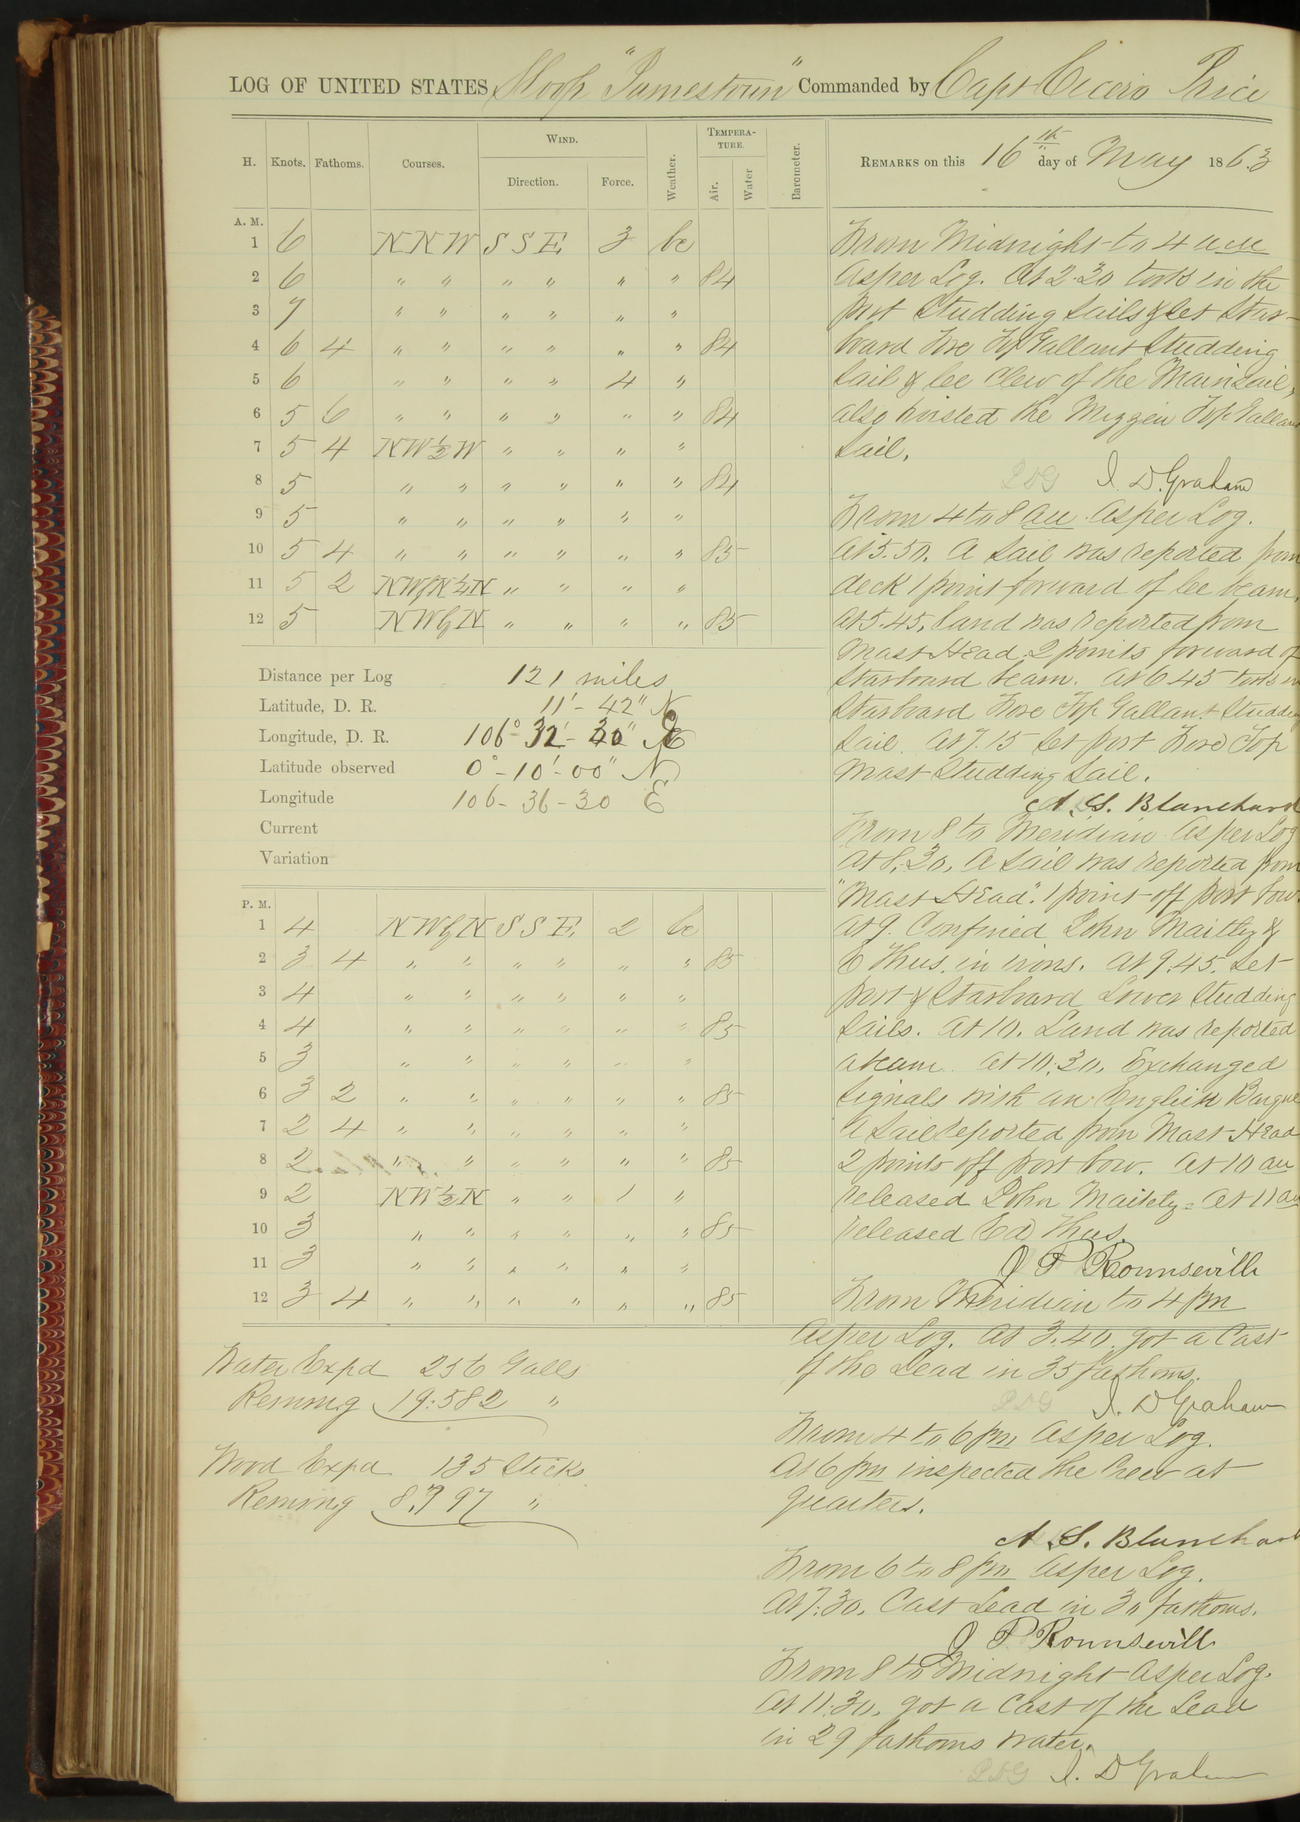 LOG OF UNITED STATES Sloop "Jamestown" Commanded by Capt Cicero Price
H. Knots. Fathoms. Courses. WIND. Direction. Force. Weather. TEMPERATURE. Air. Water Barometer.
REMARKS on this 16th day of May 1863
A. M.
1 6 NNW SSE 3 bc
2 6 " " " " " " 84
3 7 " " " " " "
4 6 4 " " " " " " 84
5 6 " " " " 4 "
6 5 6 " " " " " " 84
7 5 4 NW½W " " " "
8 5 " " " " " " 84
9 5 " " " " " "
10 5 4 " " " " " " 85
11 5 2 NWbN½N " " " "
12 5 NWbN " " " " 85
Distance per Log 121 miles
Latitude, D. R. 11' - 42" N
Longitude, D. R. 106° - 32' - 30" E
Latitude observed 0° - 10' - 00" N
Longitude 106 - 36 - 30 E
Current
Variation
P. M.
1 4 NWbN SSE. 2 bc
2 3 4 " " " " " " 85
3 4 " " " " " "
4 4 " " " " " " 85
5 3 " " " " " "
6 3 2 " " " " " " 85
7 2 4 " " " " " "
8 2 " " " " " " 85
9 2 NW½N " " 1 "
10 3 " " " " " " 85
11 3 " " " " " "
12 3 4 " " " " " " 85
Water Expd 256 Galls
Remng 19.582 "
Wood Expd 135 Sticks
Remng 8,797 "
From Midnight to 4 am
As per Log. At 2.30 took in the
port Studding Sails & set Star-
board Fore Top Gallant Studding
Sail & lee clew of the Mainsail,
also hoisted the Mizzen Top Gallant
Sail.
PDG I. D. Graham
From 4 to 8 am As per Log.
At 5.50. A Sail was reported from
deck 1 point forward of lee beam.
At 5.45, Land was reported from
Mast Head 2 points forward of
Starboard beam. At 6 45 took in
Starboard Fore Top Gallant Studding
Sail. At 7.15 Set port Fore Top
Mast Studding Sail.
A. S. Blanchard
From 8 to Meridian As per Log
At 8.30. A Sail was reported from
"Mast Head". 1 point off port bow.
At 9. Confined John &
E Thus. in irons. At 9.45. Set
port & Starboard Lower Studding
Sails. At 10. Land was reported
abeam. At 10.30. Exchanged
Signals with an English Barque
A Sail reported from Mast Head
2 points off port bow. At 10 am
released John At 11 am
released Ed Thus.
J P Rounsevill
From Meridian to 4 pm
As per Log. At 3.40. got a Cast
of the Lead in 35 fathoms.
PDG I. D Graham
From 4 to 6 pm As per Log.
At 6 pm inspected the Crew at
quarters.
A. S. Blanchard
From 6 to 8 pm As per Log.
At 7.30. Cast Lead in 30 fathoms.
J P Rounsevill
From 8 to Midnight As per Log.
At 11.30. got a Cast of the Lead
in 29 fathoms water.
PDG I. D Graham